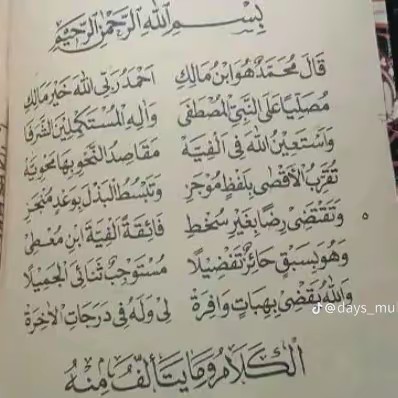 بِسْمِ اللهِ الرَّحْمٰنِ الرَّحِيْمِ
قَالَ مُحَمَّدٌ هُوَ ابْنُ مَالِكِ أَحْمَدُ رَبِّي اللهَ خَيْرَ مَالِكِ
مُصَلِّيًا عَلَى النَّبِيِّ الْمُصْطَفَى وَآلِهِ الْمُسْتَكْمِلِيْنَ الشَّرَفَا
وَأَسْتَعِيْنُ اللهَ فِى أَلْفِيَّهْ مَقَاصِدُ النَّحْوِ بِهَا مَحْوِيَّهْ
تُقَرِّبُ الْأَقْصَى بِلَفْظٍ مُوْجَزِ وَتَبْسُطُ الْبَذْلَ بِوَعْدٍ مُنْجَزِ
٥ وَتَقْتَضِى رِضًا بِغَيْرِ سُخْطِ فَائِقَةً أَلْفِيَّةَ ابْنِ مُعْطِى
وَهُوَ بِسَبْقٍ حَائِزٌ تَفْضِيْلَا مُسْتَوْجِبٌ ثَنَائِيَ الْجَمِيْلَا
وَاللهُ يَقْضِى بِهِبَاتٍ وَافِرَهْ لِى وَلَهُ فِى دَرَجَاتِ الْآخِرَهْ
@days_mu
الْكَلَامُ وَمَا يَتَأَلَّفُ مِنْهُ